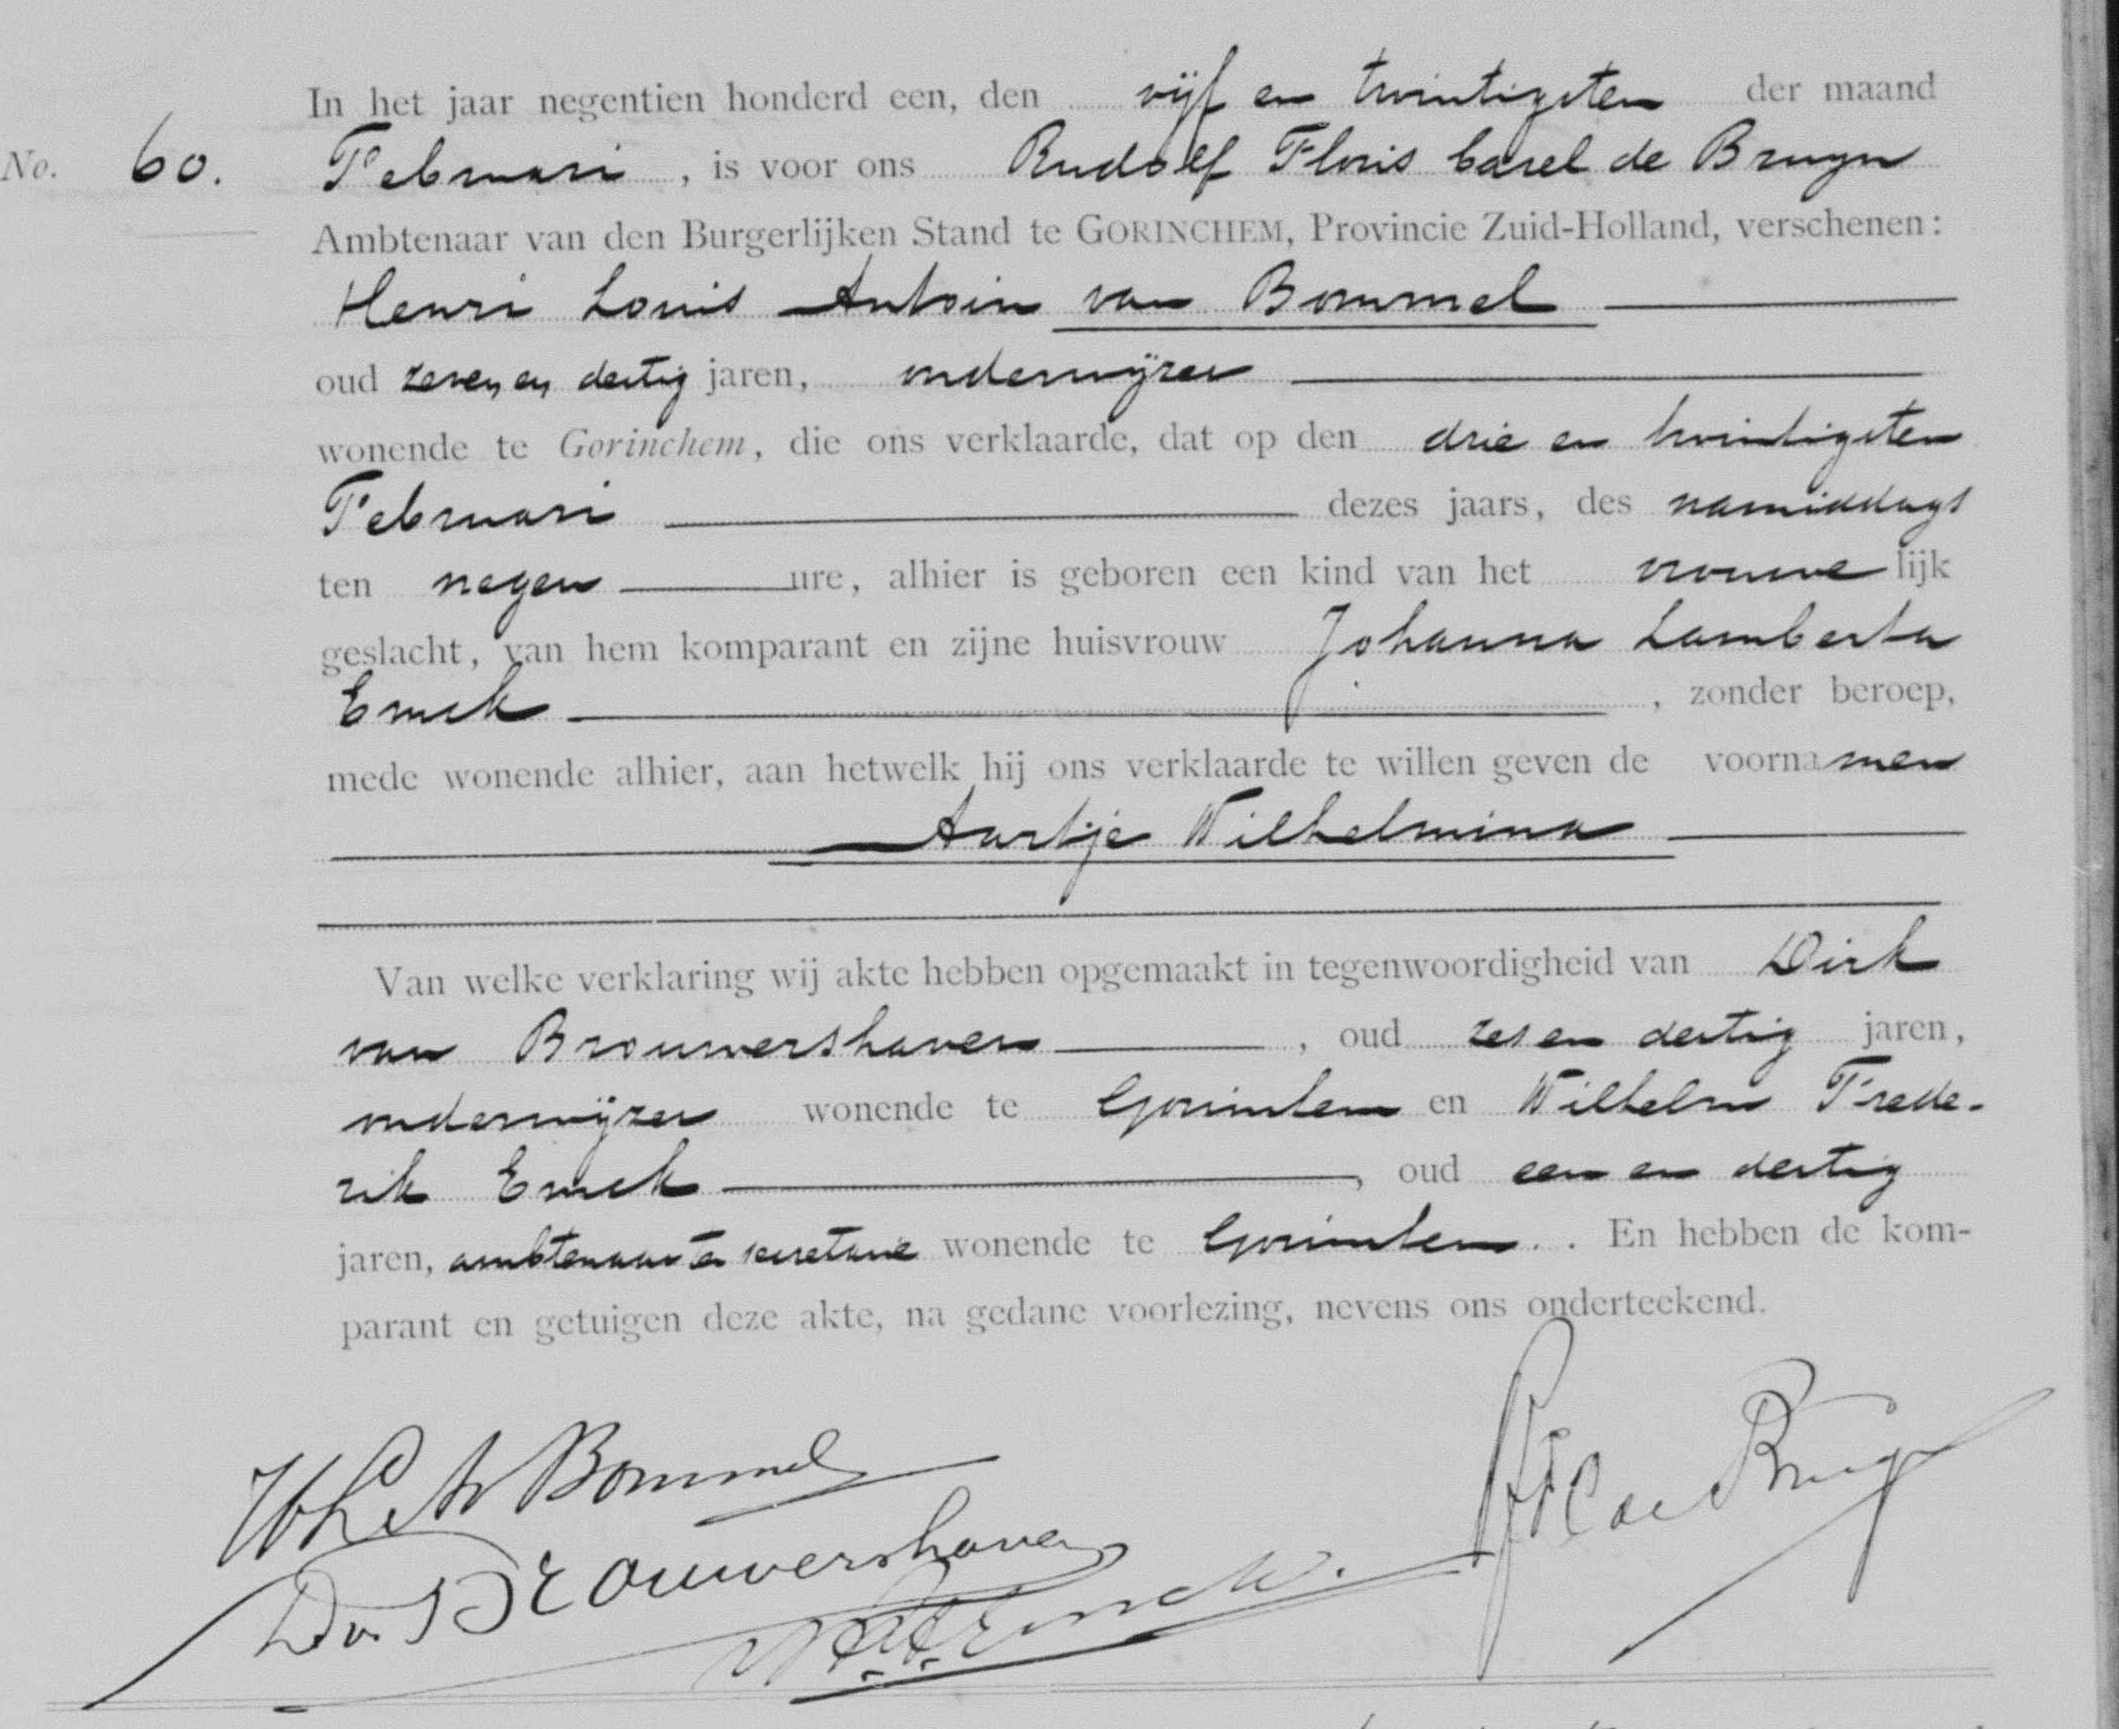 In het jaar negentien honderd een, den vijf en twintigsten der maand
No. 60. Februari, is voor ons Rudolf Floris Carel de Bruyn
Ambtenaar van den Burgerlijken Stand te GORINCHEM, Provincie Zuid-Holland, verschenen:
Henri Louis Antoin van Bommel
oud zeven en dertig jaren, onderwijzer
wonende te Gorinchem, die ons verklaarde, dat op den drie en twintigsten
Februari dezes jaars, des namiddags
ten negen ure, alhier is geboren een kind van het vrouwelijk
geslacht, van hem komparant en zijne huisvrouw Johanna Lamberta
Emck, zonder beroep,
mede wonende alhier, aan hetwelk hij ons verklaarde te willen geven de voornamen
Aartje Wilhelmina
Van welke verklaring wij akte hebben opgemaakt in tegenwoordigheid van Dirk
van Brouwershaven, oud zes en dertig jaren,
onderwijzer wonende te Gorinchem en Wilhelm Frede-
rik Emck, oud een en dertig
jaren, ambtenaar ter secretarie wonende te Gorinchem. En hebben de kom-
parant en getuigen deze akte, na gedane voorlezing, nevens ons onderteekend.
HLAv Bommel
RFC de Bruyn
Dv. Brouwershaven
W.F. Emck.